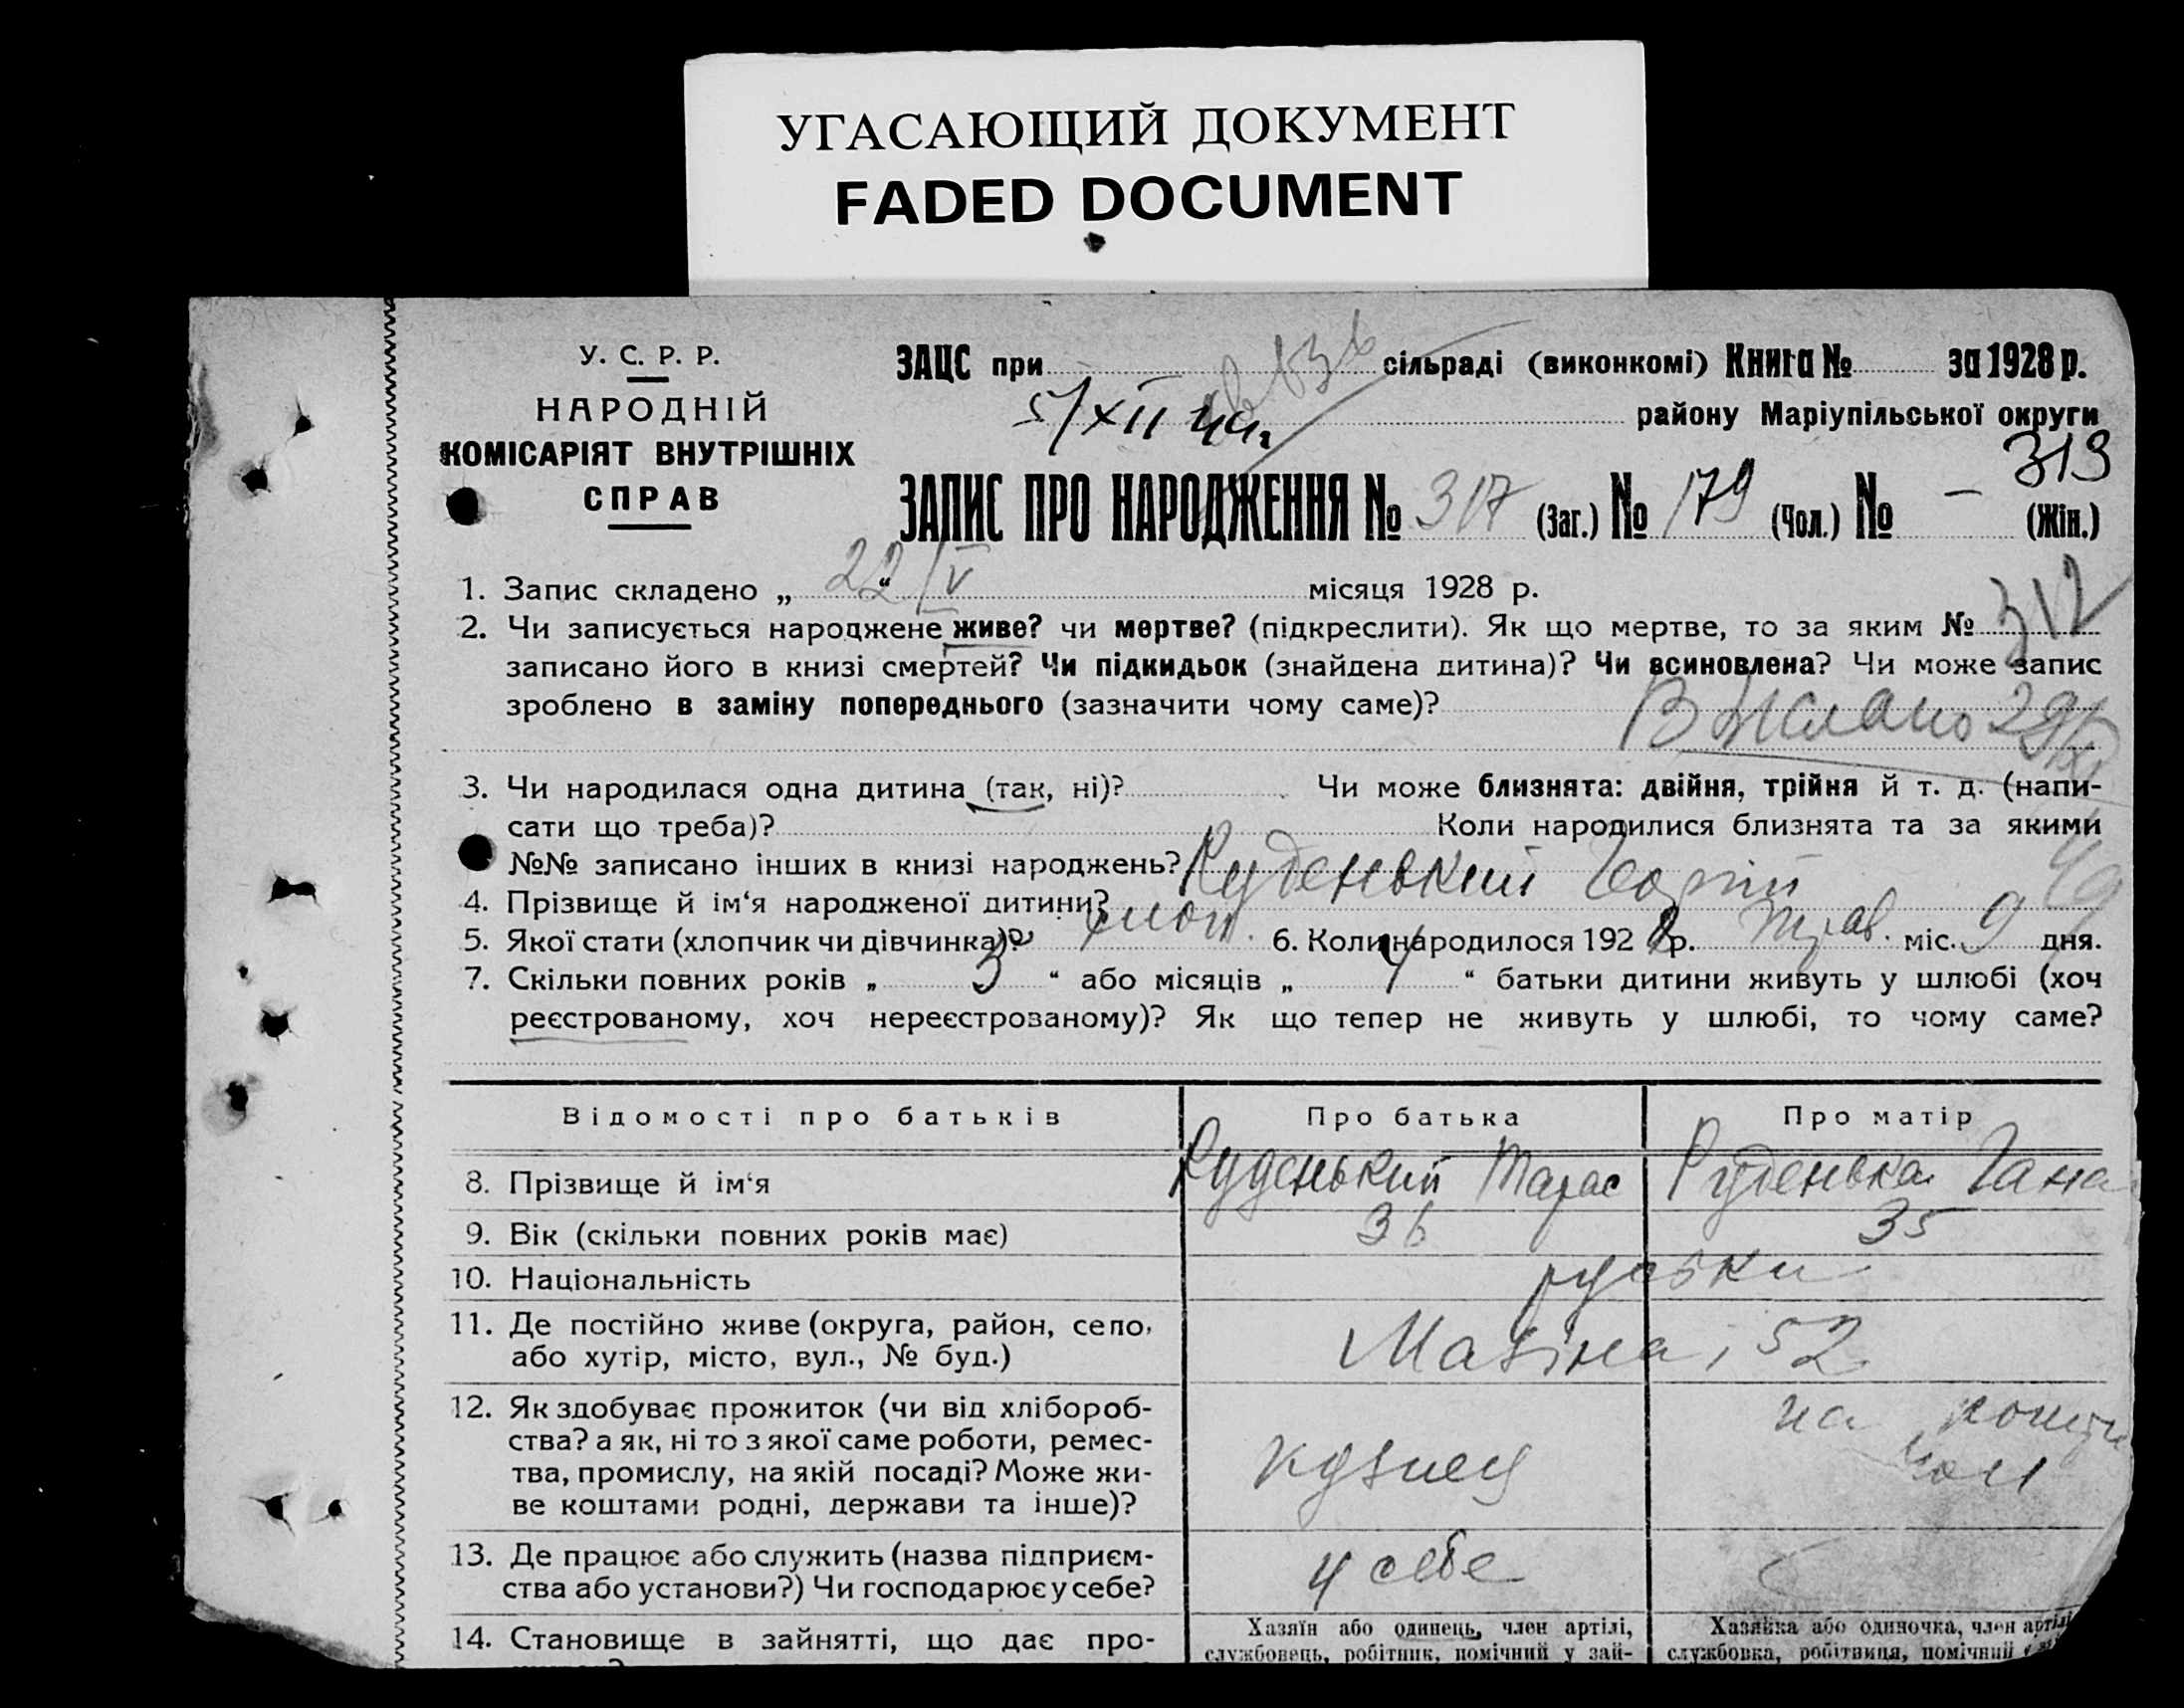 УГАСАЮЩИЙ ДОКУМЕНТ
FADED DOCUMENT
У. С. Р. Р.
НАРОДНІЙ
КОМІСАРІЯТ ВНУТРІШНІХ
СПРАВ
ЗАЦС при сільраді (виконкомі) Книга № за 1928 р.
5/XII району Маріупільської округи
313
ЗАПИС ПРО НАРОДЖЕННЯ № 317 (Заг.) № 179 (Чол.) № – (Жін.)
1. Запис складено „ 22 “ V місяця 1928 р.
2. Чи записується народжене живе? чи мертве? (підкреслити). Як що мертве, то за яким № 312
записано його в книзі смертей? Чи підкидьок (знайдена дитина)? Чи всиновлена? Чи може запис
зроблено в заміну попереднього (зазначити чому саме)?
3. Чи народилася одна дитина (так, ні)? Чи може близнята: двійня, трійня й т. д. (напи-
сати що треба)? Коли народилися близнята та за якими
№№ записано інших в книзі народжень?
4. Прізвище й ім‘я народженої дитини? Руденький Георгій
5. Якої стати (хлопчик чи дівчинка)? хлоп. 6. Коли народилося 1928 р. трав. міс. 9 дня.
7. Скільки повних років „ 3 “ або місяців „ 4 “ батьки дитини живуть у шлюбі (хоч
реєстрованому, хоч нереєстрованому)? Як що тепер не живуть у шлюбі, то чому саме?
Відомості про батьків Про батька Про матір
8. Прізвище й ім‘я Руденький Тарас Руденька Гана
9. Вік (скільки повних років має) 36 35
10. Національність руськи
11. Де постійно живе (округа, район, село,
або хутір, місто, вул., № буд.) 52
12. Як здобуває прожиток (чи від хлібороб-
ства? а як, ні то з якої саме роботи, ремес-
тва, промислу, на якій посаді? Може жи-
ве коштами родні, держави та інше)? кузнец на кошти чол
13. Де працює або служить (назва підприєм-
ства або установи?) Чи господарює у себе? у себе
14. Становище в зайнятті, що дає про-
Хазяїн або одинець, член артілі,
службовець, робітник, помічний у зай-
Хазяйка або одиночка, член артілі
службовка, робітниця, помічний